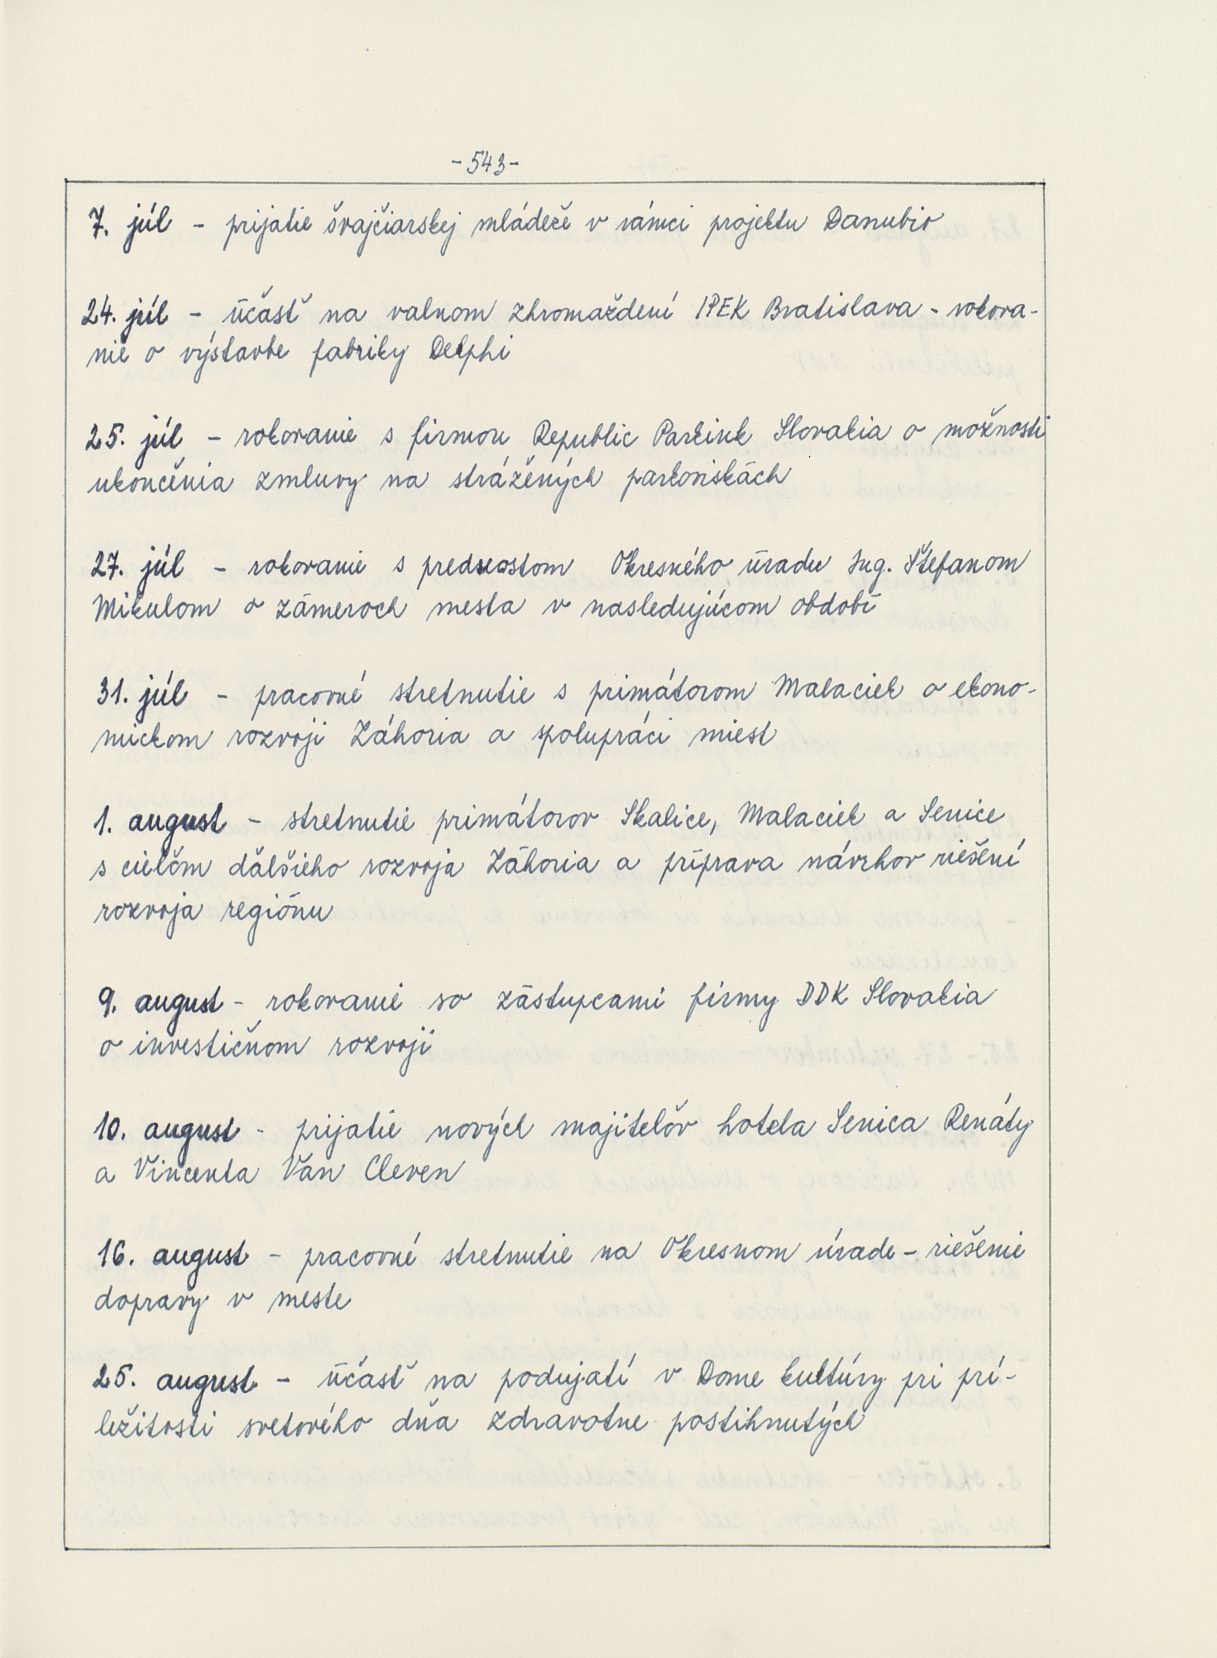 -543-
7. júl - prijatie švajčiarskej mládeže v rámci projektu Danubio
24. júl - účasť na valnom zhromaždení IPEK Bratislava - rokova-
nie o výstavbe fabriky Delphi
25. júl - rokovanie s firmou Republic Parkink Slovakia o možnosti
ukončenia zmluvy na strážených parkoviskách
27. júl - rokovanie s prednostom Okresného úradu Ing. Štefanom
Mikulom o zámeroch mesta v nasledujúcom období
31. júl - pracovné stretnutie s primátorom Malaciek o ekono-
mickom rozvoji Záhoria a spolupráci miest
1. august - stretnutie primátorov Skalice, Malaciek a Senice
s cieľom ďalšieho rozvoja Záhoria a príprava návrhov riešení
rozvoja regiónu
9. august - rokovanie so zástupcami firmy DDK Slovakia
o investičnom rozvoji
10. august - prijatie nových majiteľov hotela Senica Renáty
a Vincenta Van Cleven
16. august - pracovné stretnutie na Okresnom úrade - riešenie
dopravy v meste
25. august - účasť na podujatí v Dome kultúry pri prí-
ležitosti svetového dňa zdravotne postihnutých